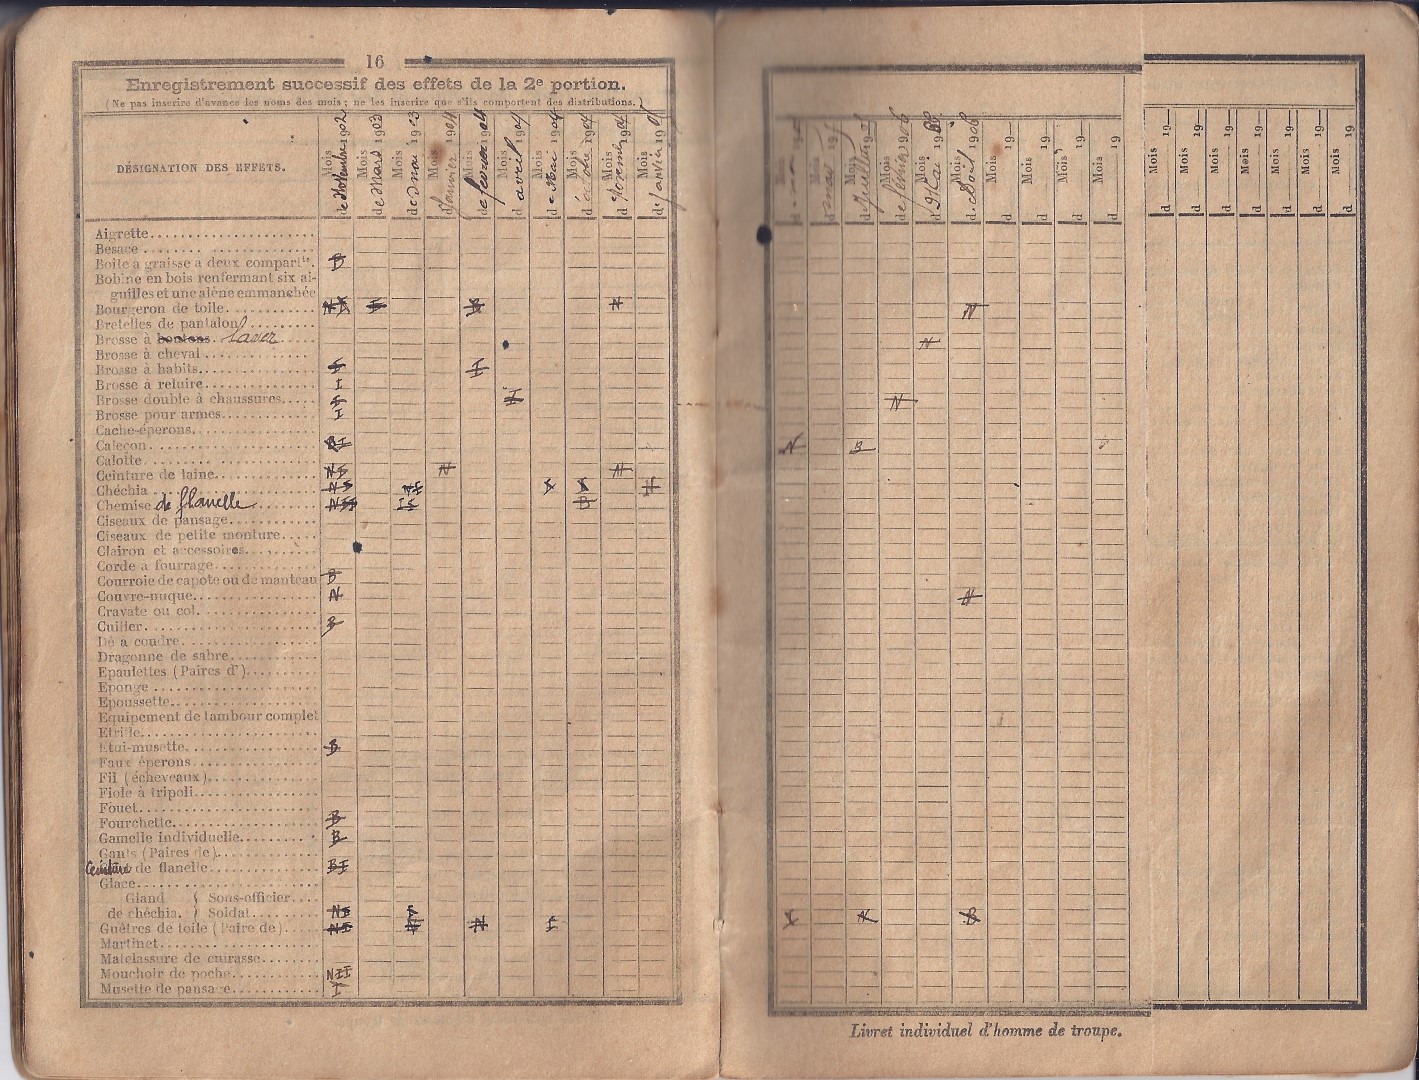 16
Enregistrement successif des effets de la 2e portion.
(Ne pas inscrire d'avance les noms des mois ; ne les inscrire que s'ils comportent des distributions.)
DÉSIGNATION DES EFFETS.
Mois de Novembre 1902
Mois de Mars 1903
Mois de 1903
Mois d Janvier 1904
Mois de février 1904
Mois d avril 1904
Mois d Mai 1904
Mois d octobre 1904
Mois d Novemb 1904
Mois d' janvier 19
Mois d Juillet
Mois de février 1906
Mois d Mai 19
Mois d Aout 1906
Mois d 19
Mois d 19
Mois d 19
Mois d 19
Mois d 19
Mois d 19
Mois d 19
Mois d 19
Mois d 19
Mois d 19
Mois d 19
Aigrette
Besace
Boite a graisse a deux compartts. B
Bobine en bois renfermant six ai-
guilles et une alène emmanchée
Bourgeron de toile N
Bretelles de pantalon
Brosse à boutons laver N
Brosse à cheval
Brosse à habits
Brosse à reluire I
Brosse double à chaussures N
Brosse pour armes I
Cache-éperons
Caleçon BI N B
Calotte
Ceinture de laine N N
Chéchia
Chemise de flanelle
Ciseaux de pansage
Ciseaux de petite monture
Clairon et accessoires
Corde a fourrage
Courroie de capote ou de manteau B
Couvre-nuque N N
Cravate ou col
Cuiller B
Dé a coudre
Dragonne de sabre
Epaulettes (Paires d')
Eponge
Epoussette
Equipement de tambour complet
Etrille
Etui-musette B
Faux éperons
Fil (écheveaux)
Fiole à tripoli
Fouet
Fourchette B
Gamelle individuelle B
Gants (Paires de)
Ceinture de flanelle BI
Glace
Gland de chéchia. { Sous-officier
Soldat
Guêtres de toile (Paire de) N I
Martinet
Matelassure de cuirasse
Mouchoir de poche NII
Musette de pansage I
Livret individuel d'homme de troupe.